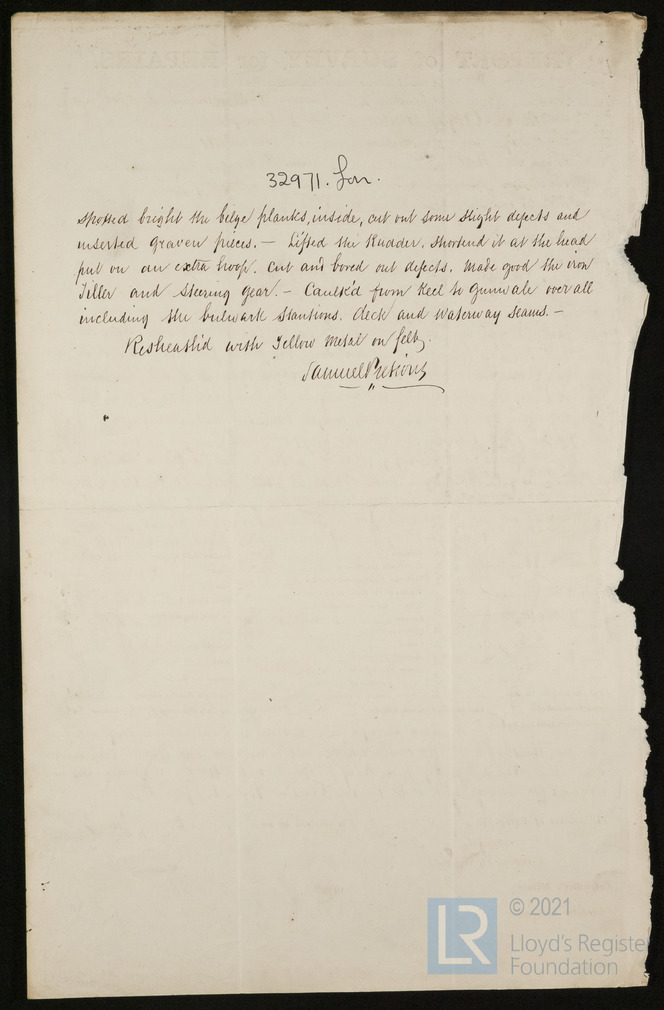 32971. Lon.
Spotted bright the bilge planks, inside, cut out some slight defects and
inserted graven pieces. — Lifted the Rudder, shortend it at the head
put on an extra hoop. Cut and bored out defects. Made good the iron
Tiller and Steering Gear. — Caulk'd from Keel to Gunwale over all
including the bulwark Stantions. deck and Waterway Seams. —
Resheath'd with Yellow Metal on felt.
Samuel
LR
© 2021
Lloyd's Register
Foundation